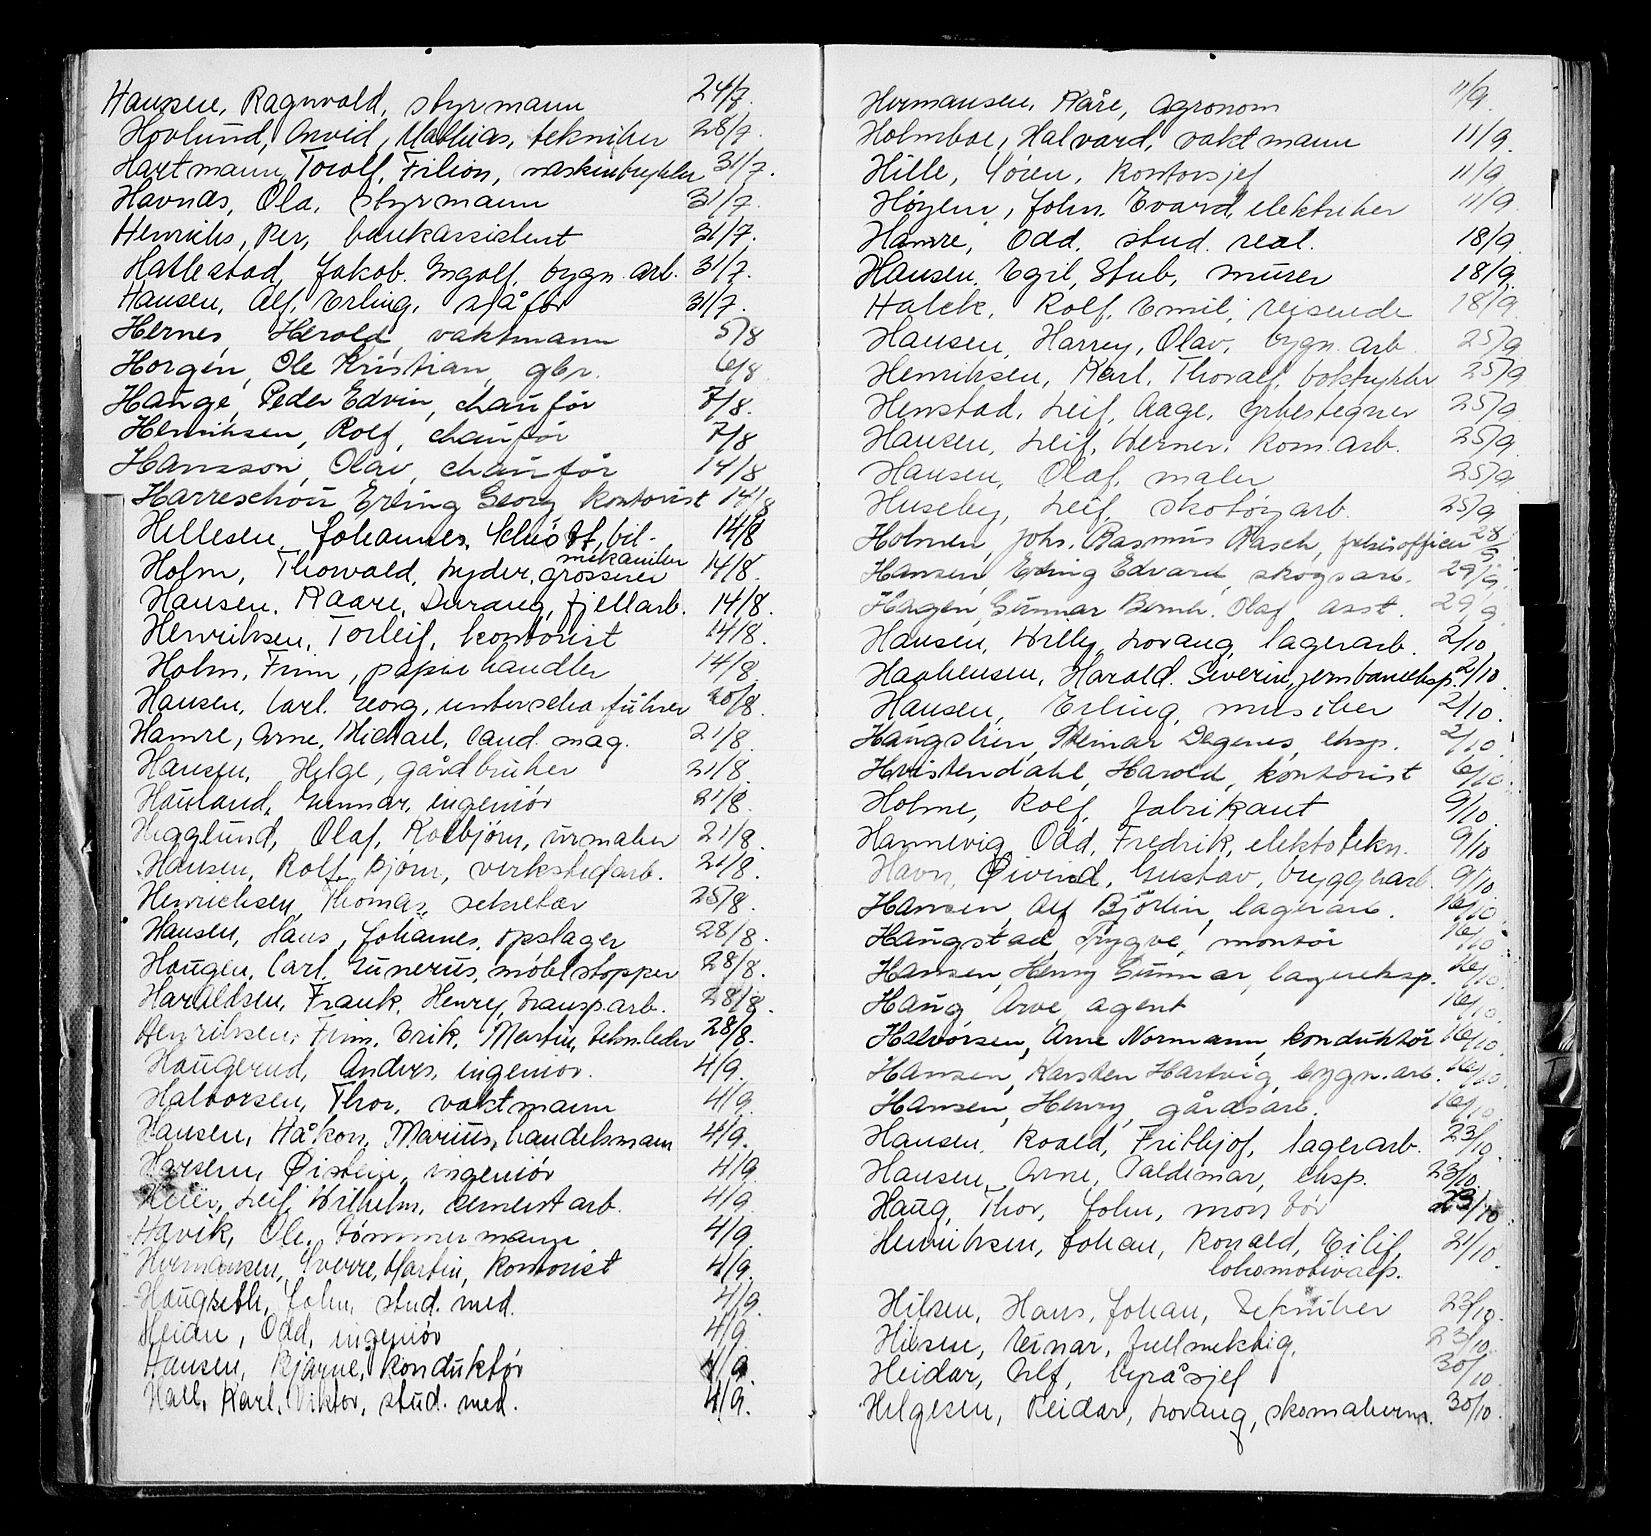 Hansen, Ragnvald, styrmann 24/7.
Hovlund, Arvid, Mathias, tekniker 28/7.
Hartmann, Torolf, Filion, maskintrykker 31/7.
Havnås, Ola, styrmann 31/7.
Henriks, Per, bankassistent 31/7.
Hatlestad, Jakob. Ingolf, bygn. arb. 31/7.
Hansen, Alf, Erling, sjåfør 31/7.
Hernes, Harald, vaktmann 5/8
Horgen, Ole Kristian, gbr. 6/8
Hauge, Peder Edvin, chaufför 7/8.
Henriksen, Rolf, chaufför 7/8
Hansson, Olav, chaufför 14/8
Harreschou Erling Georg kontorist 14/8
Hillesen, Johannes, bil- 14/8
mekaniker
Holm, Thorvald, Lyder, grosserer 14/8.
Hansen, Kaare, Durang, fjellarb. 14/8.
Henriksen, Torleif, kontorist 14/8.
Holm, Finn, papirhandler 14/8.
Hansen, Carl. Georg, unterscha.führer 20/8.
Hamre, Arne, Michael, cand. mag. 21/8.
Hansen, Helge, gårdbruker 21/8.
Hauland, Gunnar, ingeniör 21/8.
Hegglund, Olaf, Kolbjörn, urmaker 21/8.
Hansen, Rolf, Bjørn, verkstedarb. 21/8.
Henrichsen, Thomas, sekretær 25/8.
Hansen, Hans, Johannes, opslager 28/8.
Haugen, Carl, Gunerius, møbelstopper 28/8.
Haraldsen, Frank, Henry, transp.arb. 28/8.
Henriksen, Finn, Erik, Martin, tekn.leder 28/8.
Haugerud, Anders, ingeniør. 4/9.
Halvorsen, Thor, vaktmann 4/9.
Hansen, Håkon, Marius, handelsmann 4/9.
Hansen, Øistein, ingeniör 4/9
Heier, Leif, Wilhelm, cementarb. 4/9.
Håvik, Ole, tømmermann 4/9
Hermansen, Sverre, Martin, kontorist 4/9.
Haugseth, John, stud. med. 4/9.
Heian, Odd, ingeniör 4/9.
Hansen, Bjarne, konduktör 4/9.
Hall, Karl, Viktor, stud. med. 4/9.
Hermansen, Kåre, agronom 11/9.
Holmboe, Halvard, vaktmann 11/9.
Hille, Sören, kontorsjef 11/9
Høyem, John. Evard, elektriker 11/9.
Hamre, Odd, stud. real. 18/9.
Hansen, Egil, Stub, murer 18/9.
Halck, Rolf, Emil, reisende 18/9
Hansen, Harry, Olav, bygn. arb. 25/9
Henriksen, Karl, Thoralf, boktrykker 25/9
Henstad, Leif, Aage, yrkestegner 25/9
Hansen, Leif, Werner, kom.arb. 25/9.
Hansen, Olaf, maler 25/9.
Huseby, Leif, skotøyarb. 25/9
Holmen, Johs. Rasmus Rasch, frelsesofficer 28/9
Hansen, Erling Edvard, skogsarb. 29/9.
Hagen, Gunnar Bernh. Olaf, asst. 29/9
Hansen, Willy, Lorang, lagerarb. 2/10.
Haakensen, Harald. Severin, jernbaneeksp. 2/10.
Hansen, Erling, musiker 2/10.
Haugslien, Reinar Degenes, eksp. 2/10.
Hvistendahl, Harald, kontorist 6/10.
Holme, Rolf, fabrikant 9/10.
Hannevig, Odd, Fredrik, elektrotekn. 9/10
Havn, Øivind, Gustav, bryggerarb. 9/10
Hansen, Alf Björlin, lagerarb. 16/10.
Haugstad, Trygve, montör 16/10
Hansen, Henry Gunnar, lagereksp. 16/10.
Haug, Arve, agent 16/10.
Halvorsen, Arne Normann, konduktör 16/10.
Hansen, Karsten Hartvig, bygn.arb. 16/10.
Hansen, Henry, gårdsarb. 16/10.
Hansen, Roald, Frithjof, lagerarb. 23/10
Hansen, Arne, Valdemar, eksp. 23/10.
Haug, Thor, John, montör 23/10.
Henriksen, Johan, Ronald, Eilif, 21/10.
lokomotivasp.
Hilsen, Hans, Johan, tekniker 23/10.
Hilsen, Einar, fullmektig, 23/10.
Heidar, Alf, byråsjef 30/10.
Helgesen, Reidar, Lorang, skomakersv. 30/10.